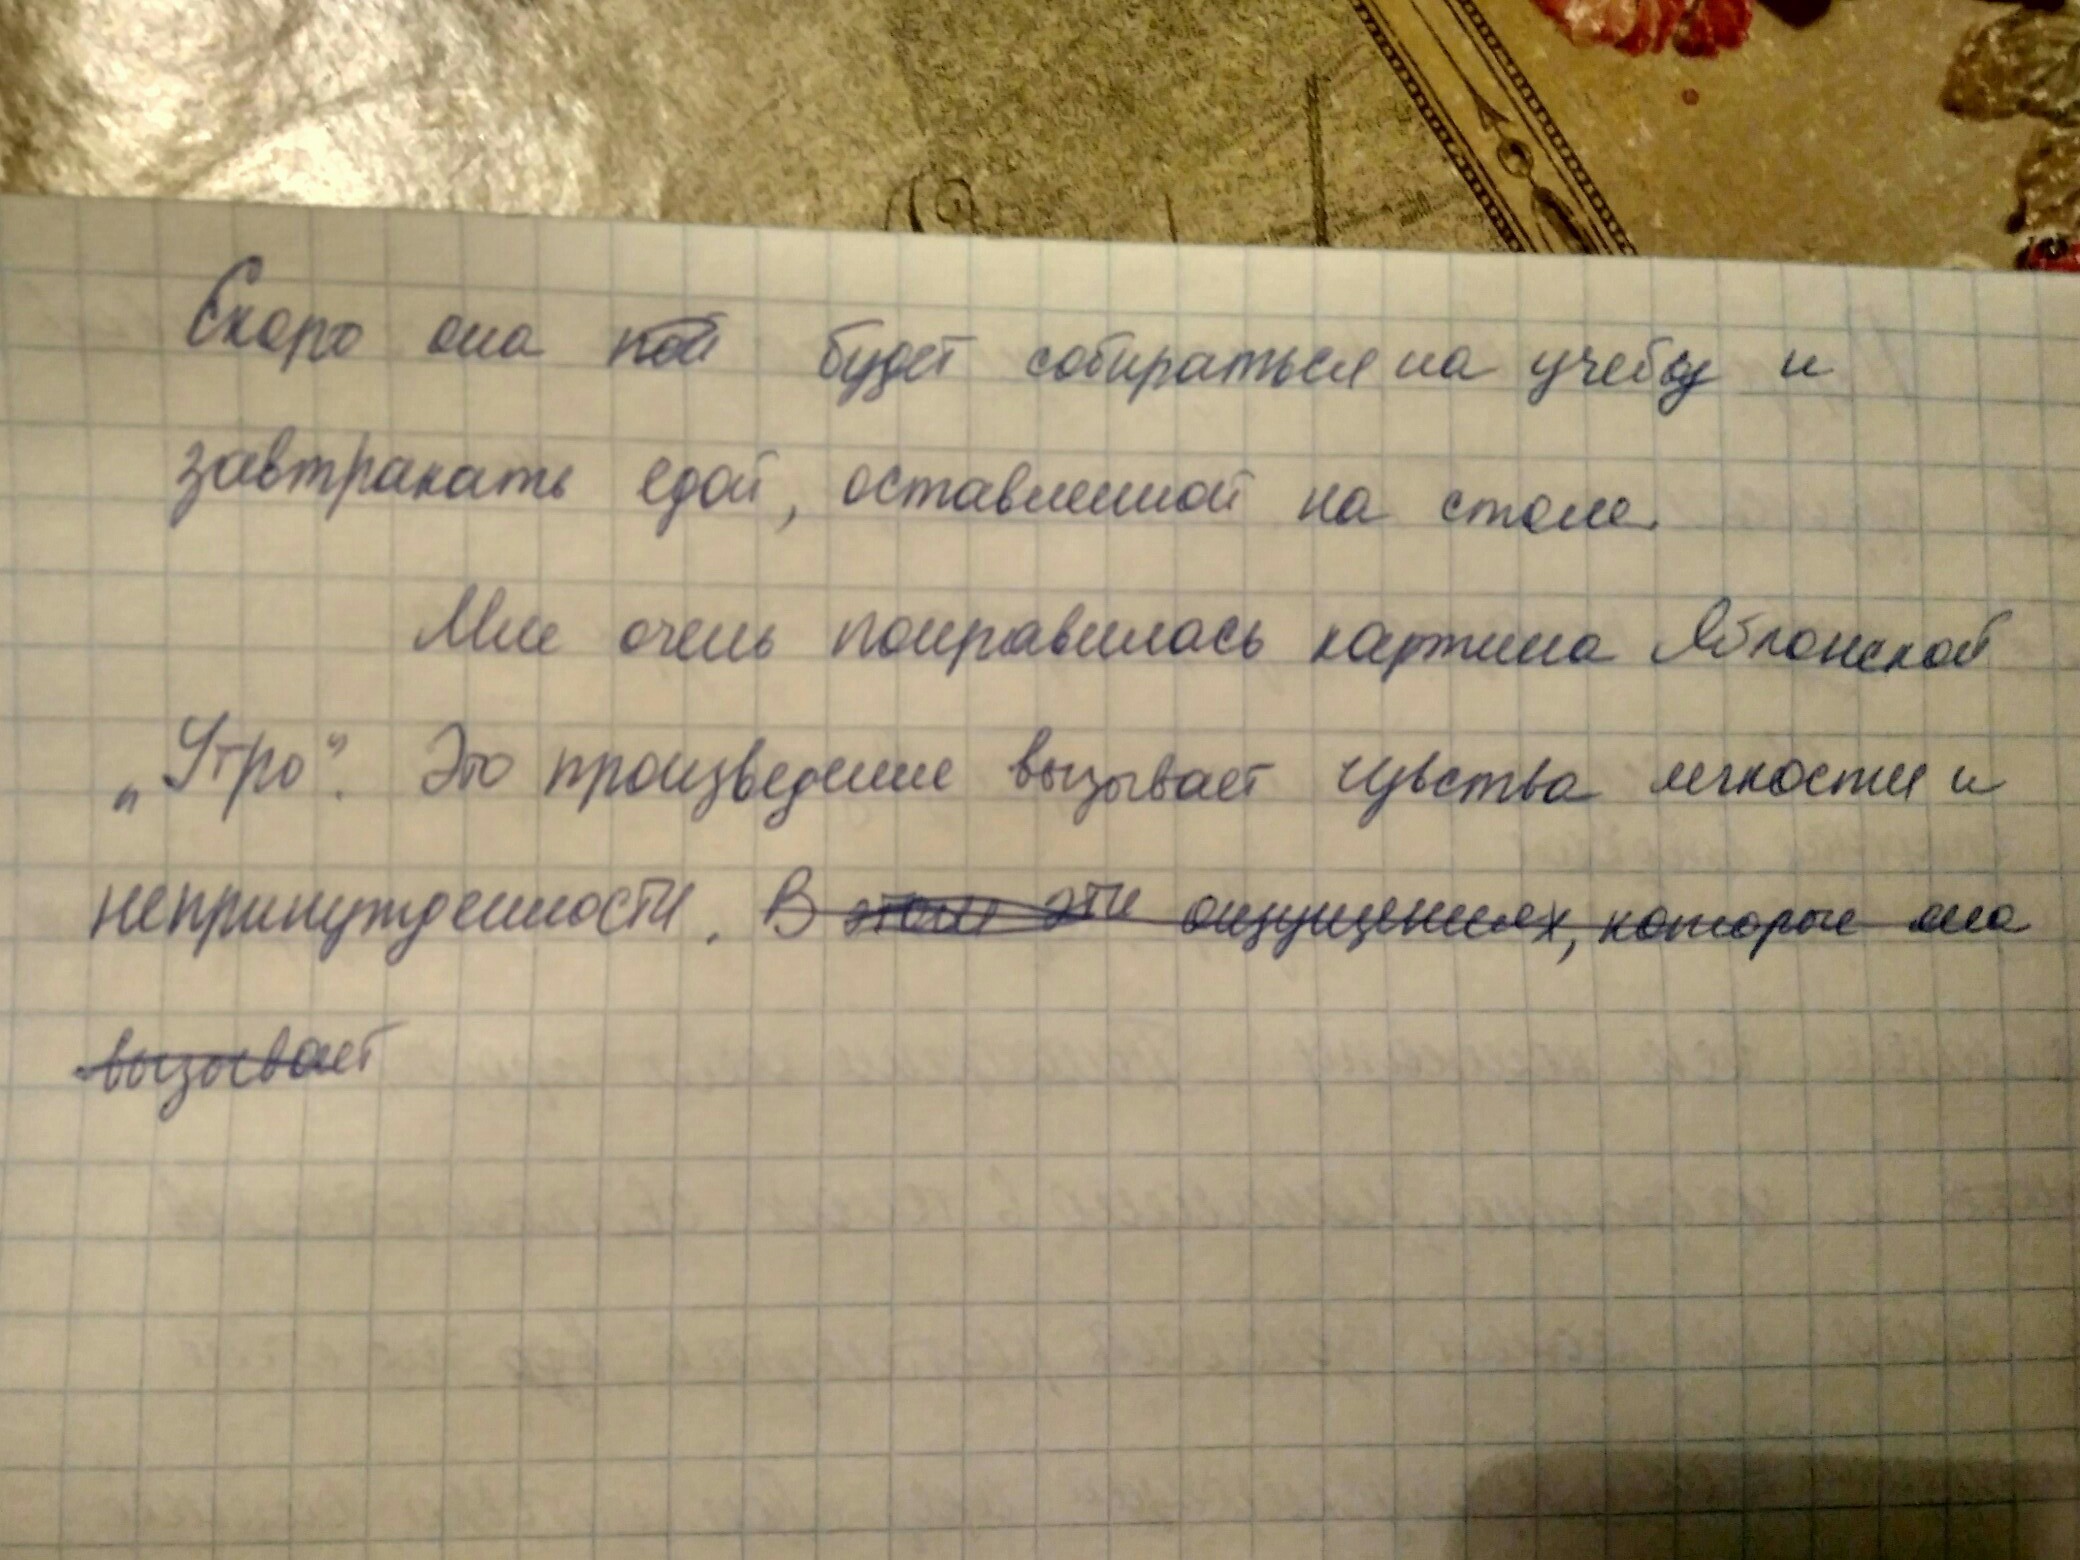 Скоро она пой будет собираться на учебу и
завтракать едой, оставленной на столе.
Мне очень понравилась картина Яблонской
„Утро“. Это произведение вызывает чувства легкости и
непринужденности. В этом эти ощущениях, которые она
вызывает